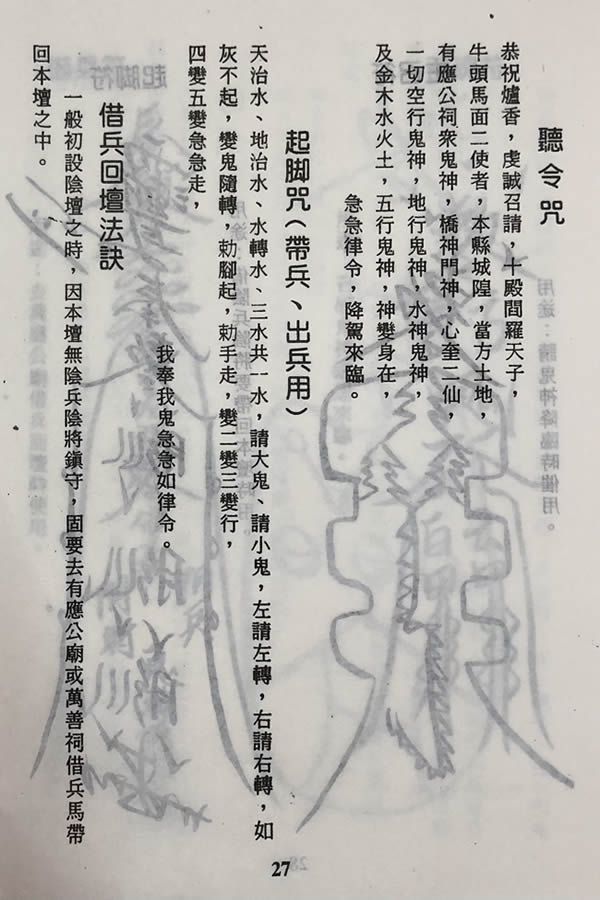 聽令咒
恭祝爐香，虔誠召請，十殿閻羅天子，
牛頭馬面二使者，本縣城隍，當方土地，
有應公祠衆鬼神，橋神門神，心奎二仙，
一切空行鬼神，地行鬼神，水神鬼神，
及金木水火土，五行鬼神，神變身在，
急急律令，降駕來臨。
起脚咒（帶兵、出兵用）
天治水、地治水、水轉水、三水共一水，請大鬼、請小鬼，左請左轉，右請右轉，如
灰不起，變鬼隨轉，勅腳起，勅手走，變二變三變行，
四變五變急急走，
我奉我鬼急急如律令。
借兵回壇法訣
一般初設陰壇之時，因本壇無陰兵陰將鎮守，固要去有應公廟或萬善祠借兵馬帶
回本壇之中。
27
起脚符
用途：請鬼神降臨時催用。
28